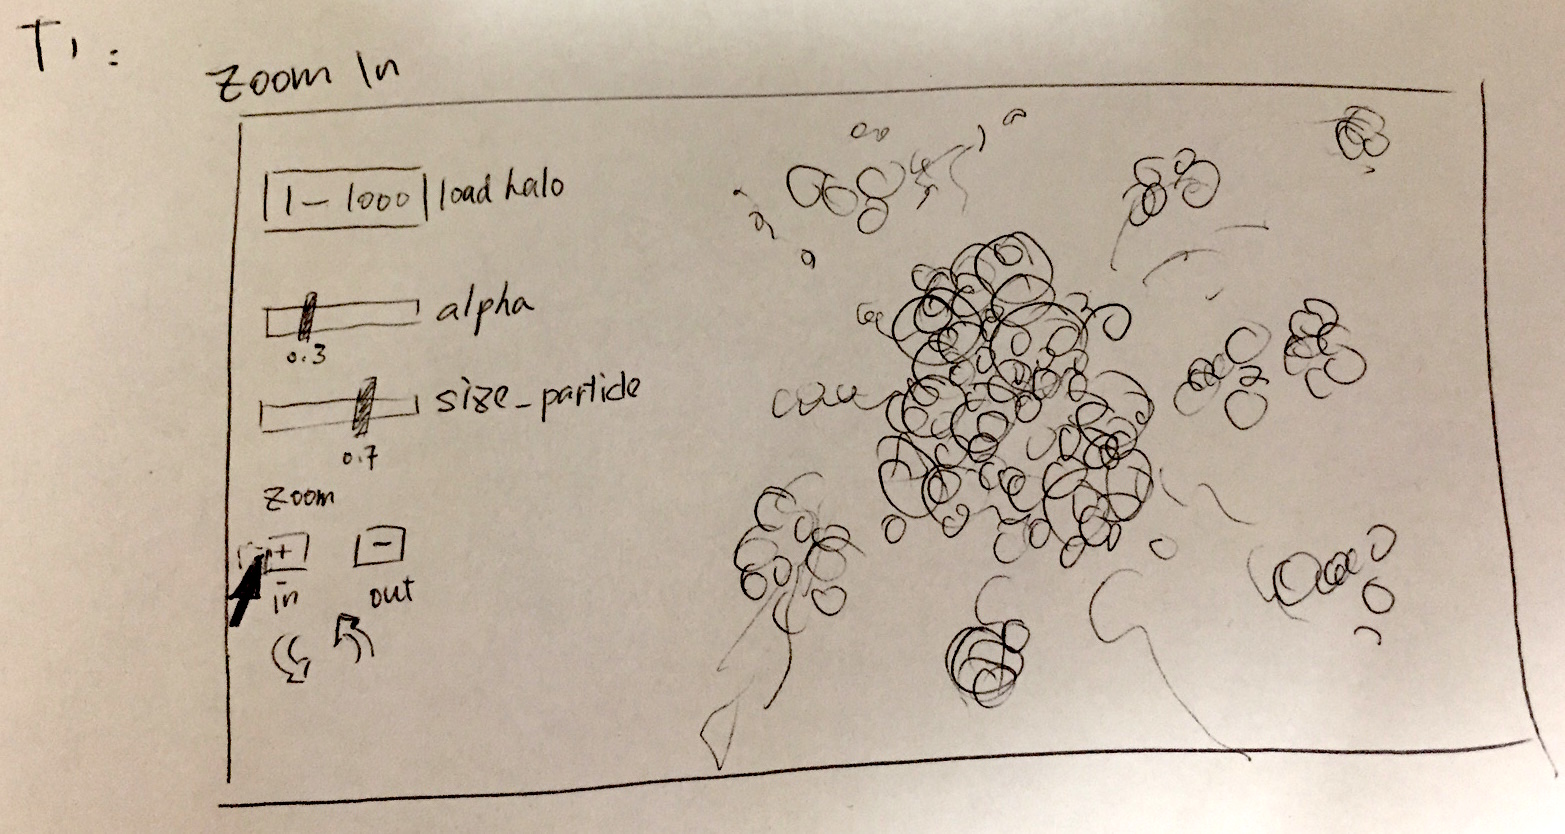 T1:
Zoom In
1-1000 load halo
alpha
0.3
size_particle
0.7
Zoom
+ -
in out